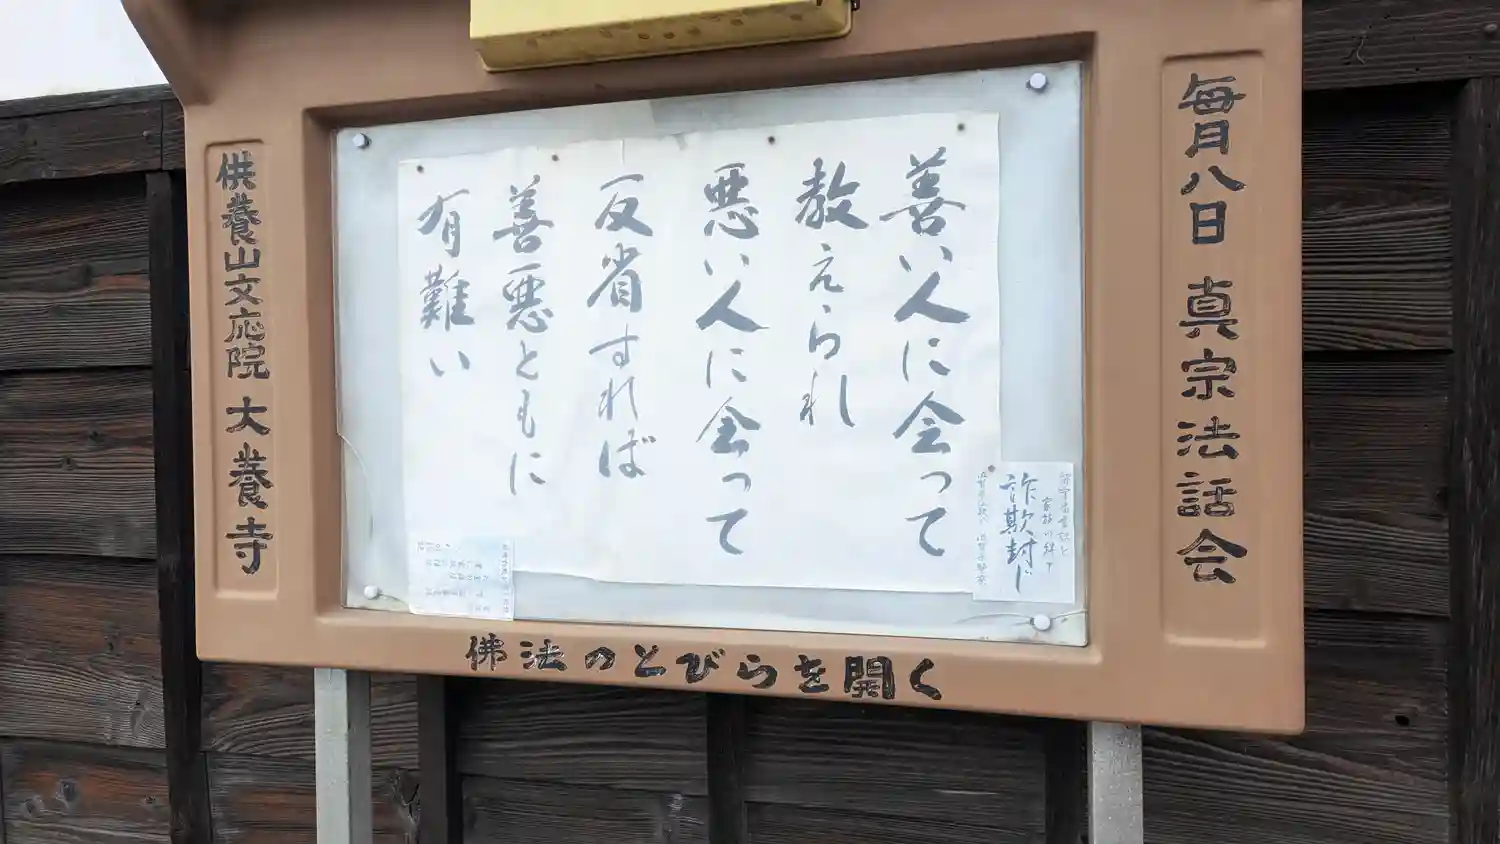 毎月八日 真宗法話会
善い人に会って
教えられ
悪い人に会って
反省すれば
善悪ともに
有難い
詐欺封じ
供養山文応院 大養寺
佛法のとびらを開く